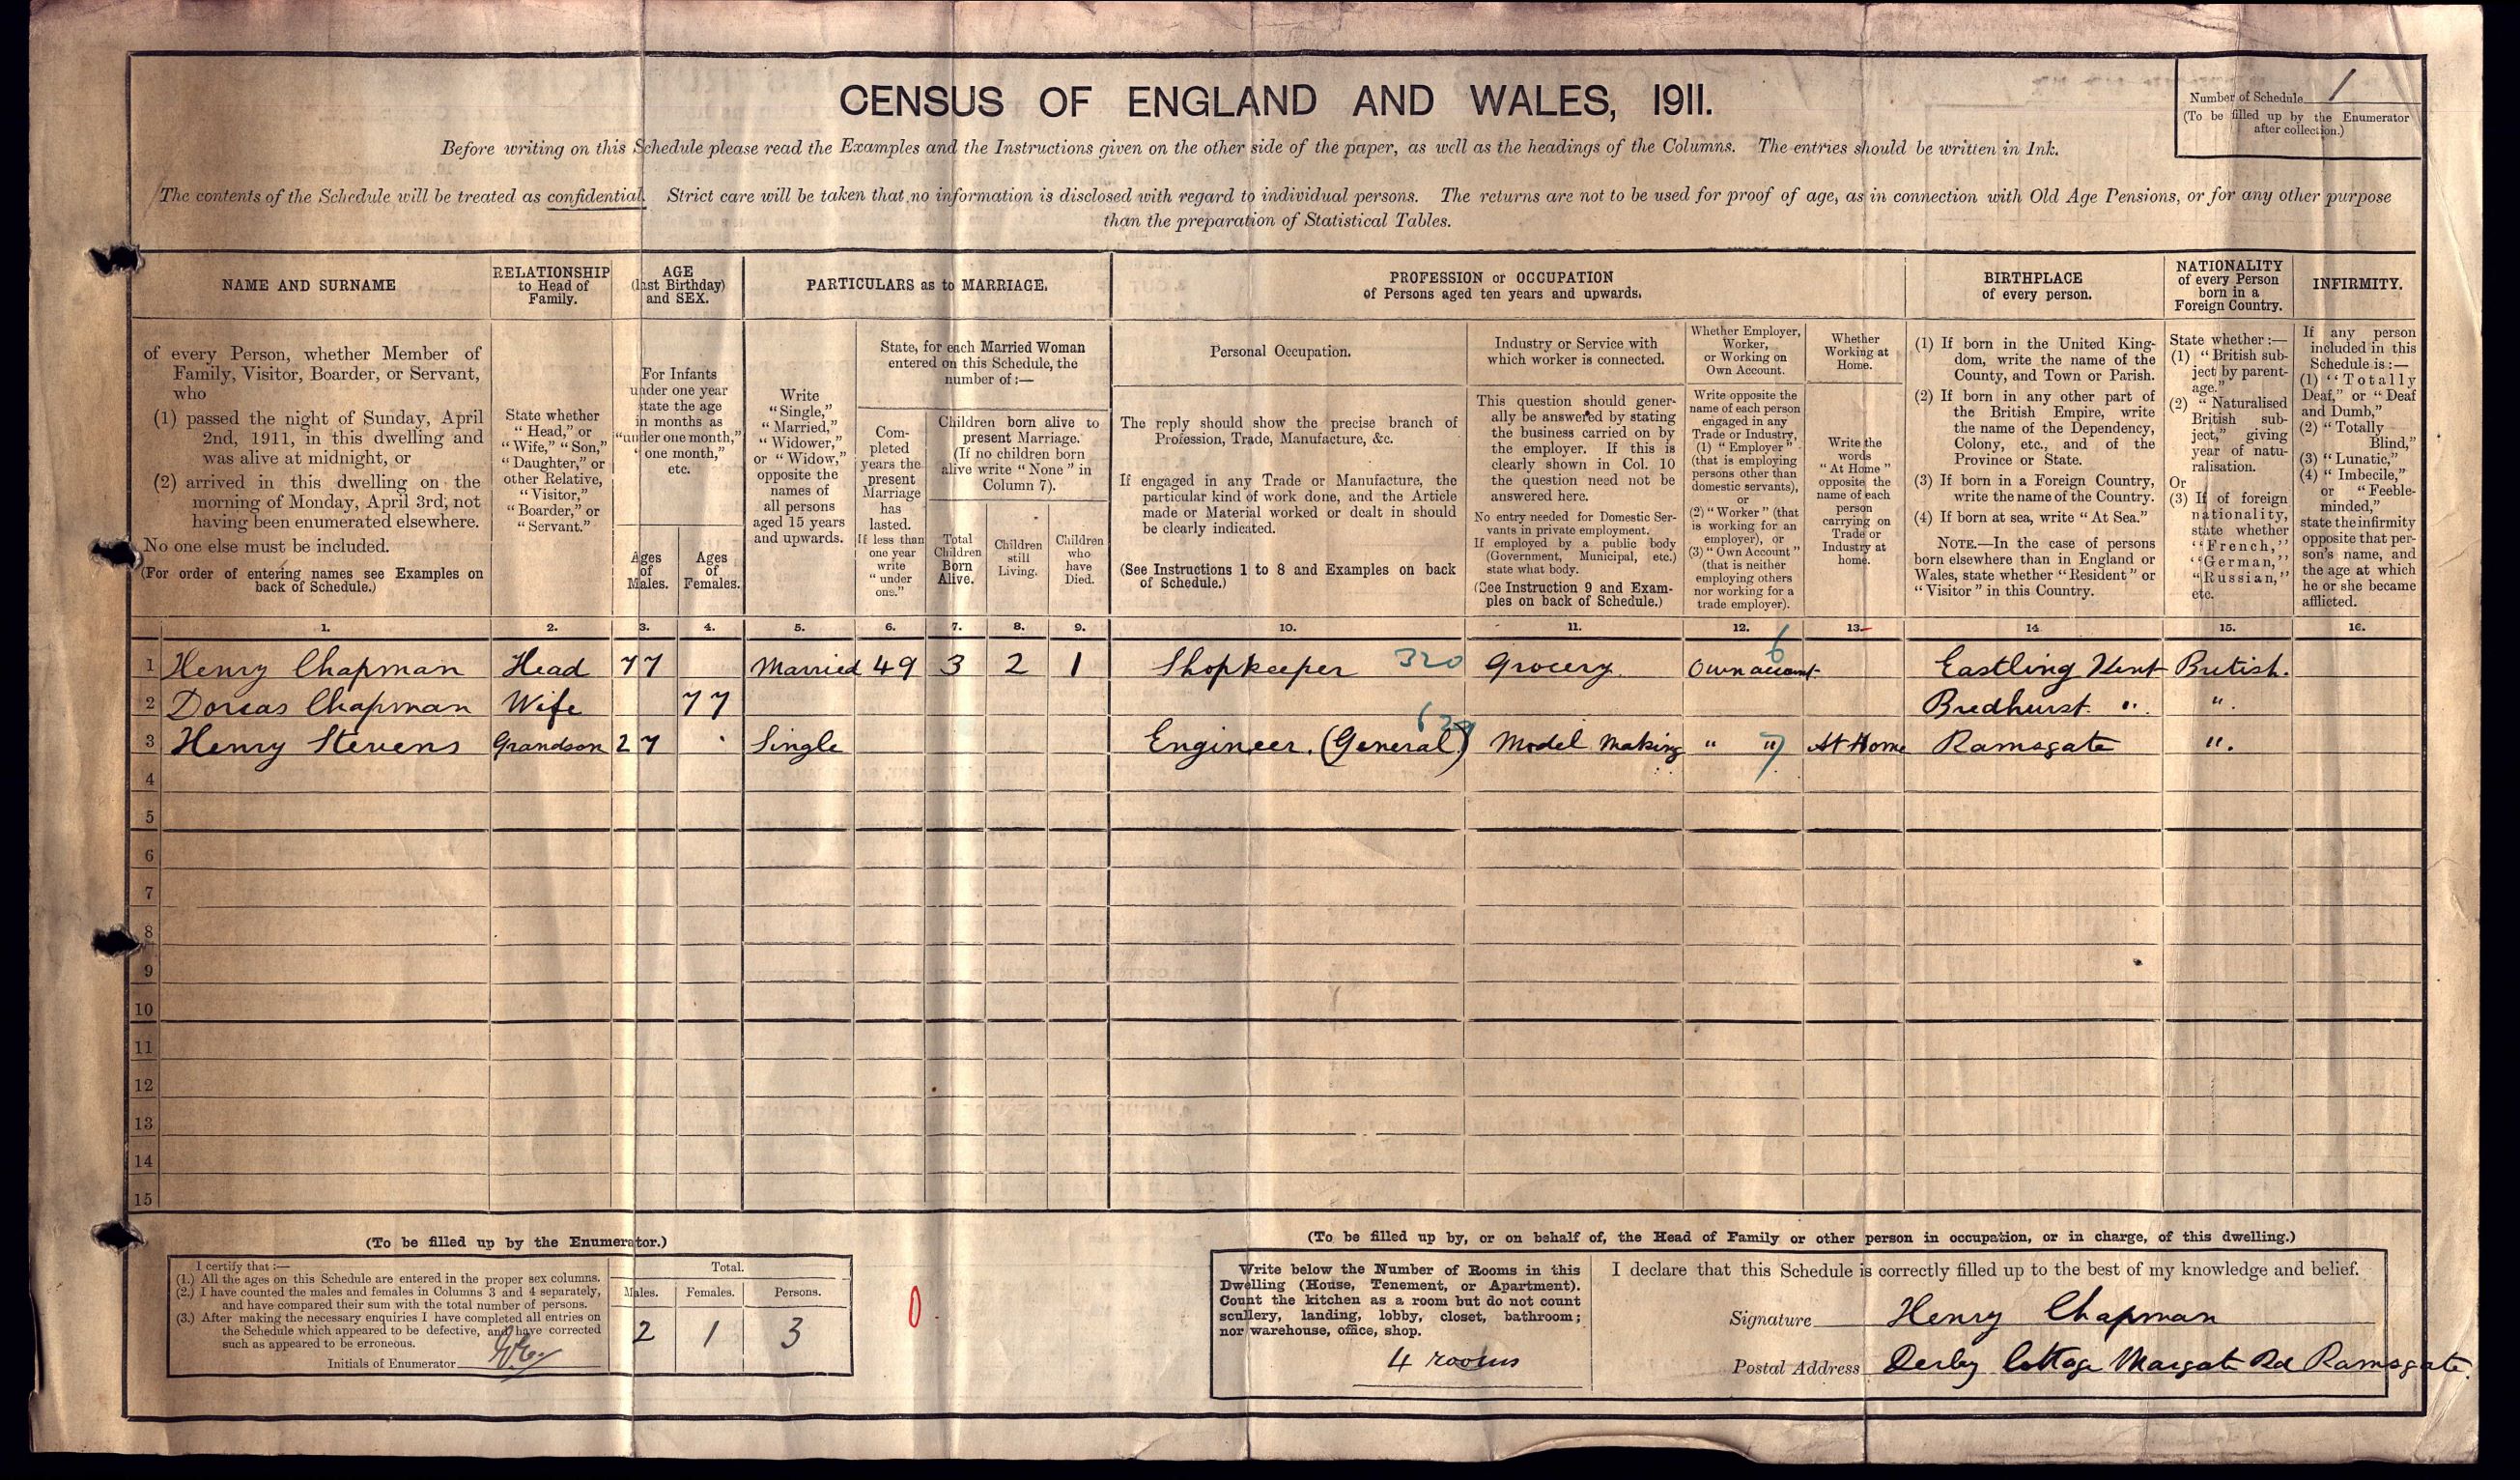 CENSUS OF ENGLAND AND WALES, 1911.
Number of Schedule 1
(To be filled up by the Enumerator
after collection.)
Before writing on this Schedule please read the Examples and the Instructions given on the other side of the paper, as well as the headings of the Columns. The entries should be written in Ink.
The contents of the Schedule will be treated as confidential. Strict care will be taken that no information is disclosed with regard to individual persons. The returns are not to be used for proof of age, as in connection with Old Age Pensions, or for any other purpose
than the preparation of Statistical Tables.
NAME AND SURNAME
of every Person, whether Member of
Family, Visitor, Boarder, or Servant,
who
(1) passed the night of Sunday, April
2nd, 1911, in this dwelling and
was alive at midnight, or
(2) arrived in this dwelling on the
morning of Monday, April 3rd, not
having been enumerated elsewhere.
No one else must be included.
(For order of entering names see Examples on
back of Schedule.)
RELATIONSHIP
to Head of
Family.
State whether
"Head," or
"Wife," "Son,"
"Daughter," or
other Relative,
"Visitor,"
"Boarder," or
"Servant."
AGE
(last Birthday)
and SEX.
For Infants
under one year
state the age
in months as
"under one month,"
"one month,"
etc.
Ages
of
Males.
Ages
of
Females.
PARTICULARS as to MARRIAGE.
Write
"Single,"
"Married,"
"Widower,"
or "Widow,"
opposite the
names of
all persons
aged 15 years
and upwards.
State, for each Married Woman
entered on this Schedule, the
number of:—
Com-
pleted
years the
present
Marriage
has
lasted.
If less than
one year
write
"under
one."
Children born alive to
present Marriage.
(If no children born
alive write "None" in
Column 7).
Total
Children
Born
Alive.
Children
still
Living.
Children
who
have
Died.
PROFESSION or OCCUPATION
of Persons aged ten years and upwards.
Personal Occupation.
The reply should show the precise branch of
Profession, Trade, Manufacture, &c.
If engaged in any Trade or Manufacture, the
particular kind of work done, and the Article
made or Material worked or dealt in should
be clearly indicated.
(See Instructions 1 to 8 and Examples on back
of Schedule.)
Industry or Service with
which worker is connected.
This question should gener-
ally be answered by stating
the business carried on by
the employer. If this is
clearly shown in Col. 10
the question need not be
answered here.
No entry needed for Domestic Ser-
vants in private employment.
If employed by a public body
(Government, Municipal, etc.)
state what body.
(See Instruction 9 and Exam-
ples on back of Schedule.)
Whether Employer,
Worker,
or Working on
Own Account.
Write opposite the
name of each person
engaged in any
Trade or Industry,
(1) "Employer"
(that is employing
persons other than
domestic servants),
or
(2) "Worker" (that
is working for an
employer), or
(3) "Own Account"
(that is neither
employing others
nor working for a
trade employer).
Whether
Working at
Home.
Write the
words
"At Home"
opposite the
name of each
person
carrying on
Trade or
Industry at
home.
BIRTHPLACE
of every person.
(1) If born in the United King-
dom, write the name of the
County, and Town or Parish.
(2) If born in any other part of
the British Empire, write
the name of the Dependency,
Colony, etc., and of the
Province or State.
(3) If born in a Foreign Country,
write the name of the Country.
(4) If born at sea, write "At Sea."
NOTE.—In the case of persons
born elsewhere than in England or
Wales, state whether "Resident" or
"Visitor" in this Country.
NATIONALITY
of every Person
born in a
Foreign Country.
State whether :—
(1) "British sub-
ject by parent-
age."
(2) "Naturalised
British sub-
ject," giving
year of natu-
ralisation.
Or
(3) If of foreign
nationality,
state whether
"French,"
"German,"
"Russian,"
etc.
INFIRMITY.
If any person
included in this
Schedule is:—
(1) "Totally
Deaf," or "Deaf
and Dumb,"
(2) "Totally
Blind,"
(3) "Lunatic,"
(4) "Imbecile,"
or "Feeble-
minded,"
state the infirmity
opposite that per-
son's name, and
the age at which
he or she became
afflicted.
1. 2. 3. 4. 5. 6. 7. 8. 9. 10. 11. 12. 13. 14. 15. 16.
1 Henry Chapman Head 77 Married 49 3 2 1 Shopkeeper 320 Grocery Own account 6 Eastling Kent British.
2 Dorcas Chapman Wife 77 Bredhurst " ".
3 Henry Stevens Grandson 27 Single Engineer. (General) Model Making " " 7 At Home Ramsgate ".
4
5
6
7
8
9
10
11
12
13
14
15
(To be filled up by the Enumerator.)
I certify that :—
(1.) All the ages on this Schedule are entered in the proper sex columns.
(2.) I have counted the males and females in Columns 3 and 4 separately,
and have compared their sum with the total number of persons.
(3.) After making the necessary enquiries I have completed all entries on
the Schedule which appeared to be defective, and have corrected
such as appeared to be erroneous.
Initials of Enumerator
Total.
Males. Females. Persons.
2 1 3
0
(To be filled up by, or on behalf of, the Head of Family or other person in occupation, or in charge, of this dwelling.)
Write below the Number of Rooms in this
Dwelling (House, Tenement, or Apartment).
Count the kitchen as a room but do not count
scullery, landing, lobby, closet, bathroom;
nor warehouse, office, shop.
4 rooms
I declare that this Schedule is correctly filled up to the best of my knowledge and belief.
Signature Henry Chapman
Postal Address Derby Cottage Margate Rd Ramsgate.